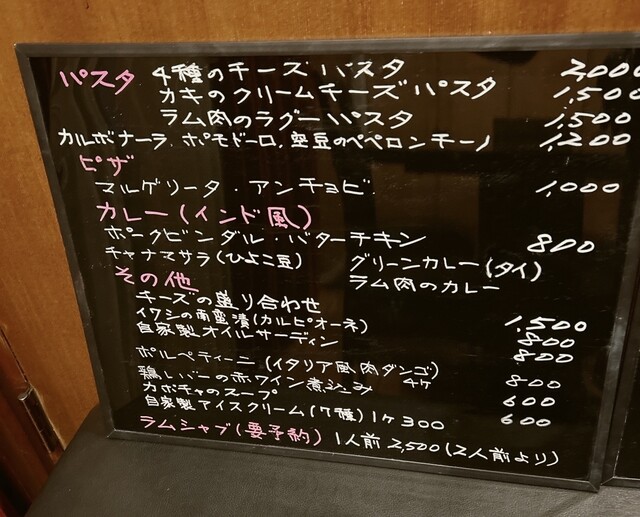 パスタ 4種のチーズパスタ 2,000
カキのクリームチーズパスタ 1,500
ラム肉のラグーパスタ 1,500
カルボナーラ、ポモドーロ、空豆のペペロンチーノ 1,200
ピザ
マルゲリータ・アンチョビ 1,000
カレー(インド風)
ポークビンダル・バターチキン 800
チャナマサラ(ひよこ豆) グリーンカレー(タイ)
ラム肉のカレー
その他
チーズの盛り合わせ 1,500
イワシの南蛮漬(カルピオーネ) 800
自家製オイルサーディン 800
ポルペティーニ(イタリア風肉ダンゴ) 4ヶ 800
鶏レバーの赤ワイン煮込み 600
カボチャのスープ 600
自家製アイスクリーム(7種)1ヶ300
ラムシャブ(要予約) 1人前 2,500(2人前より)